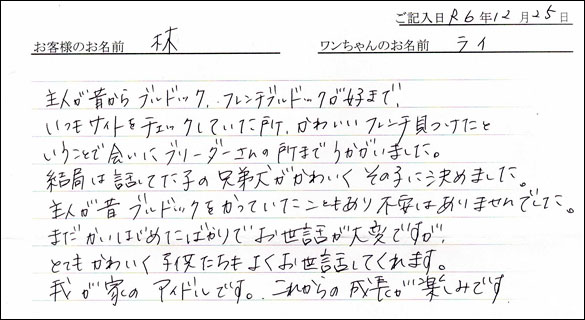 ご記入日 R6年12月25日
お客様のお名前 林 ワンちゃんのお名前 ライ
主人が昔から ブルドック、フレンチブルドックが好きで、
いつもサイトをチェックしていた所、かわいいフレンチ見つけたと
いうことで会いにブリーダーさんの所までうかがいました。
結局は話してた子の兄弟犬がかわいく その子に決めました。
主人が昔 ブルドックをかっていたこともあり 不安はありませんでした。
まだかいはじめたばかりで お世話が大変ですが、
とてもかわいく 子供たちも よくお世話してくれます。
我が家の アイドルです。これからの成長が楽しみです